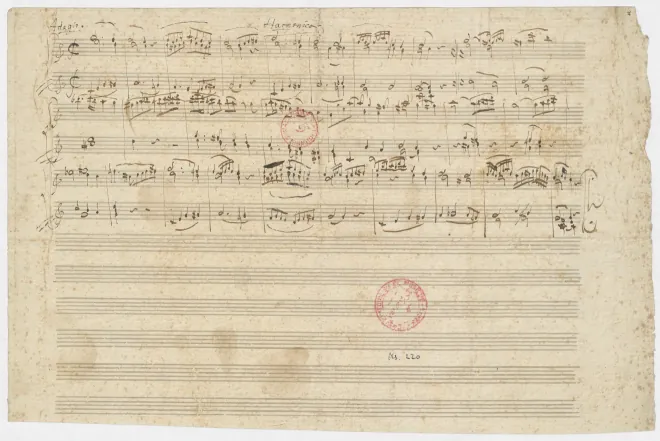 Adagio. Harmonica
Ms. 220